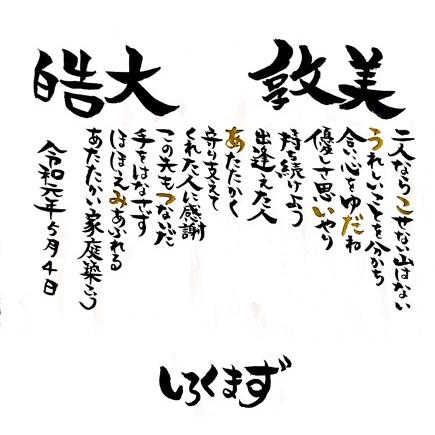 皓大
敦美
二人ならこせない山はない
うれしいことを分かち
合い心をゆだね
優しさ思いやり
持ち続けよう
出逢えた人
あたたかく
守り支えて
くれた人に感謝
この先もつないだ
手をはなさず
ほほえみあふれる
あたたかい家庭築こう
令和元年5月4日
しろくまず